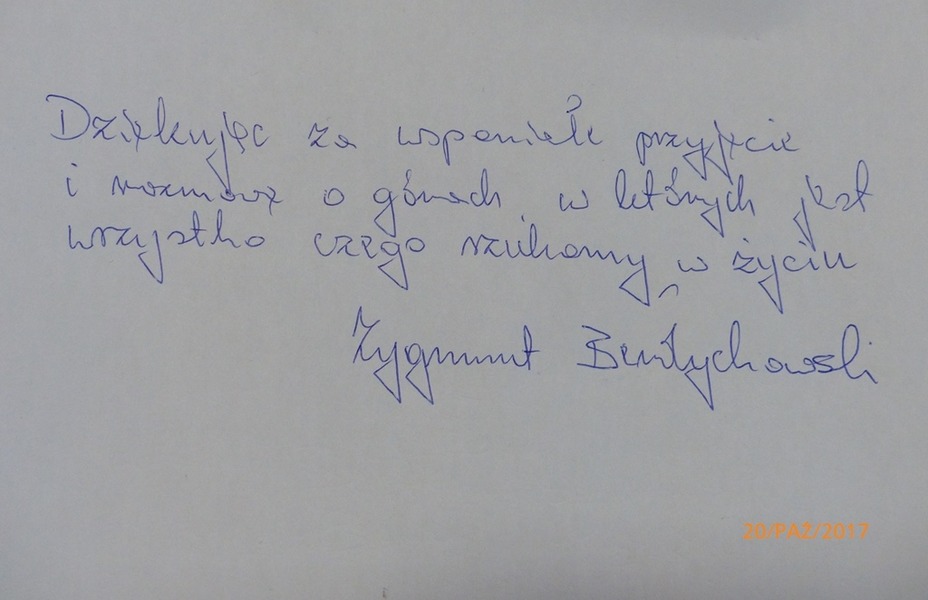 Dziękując za wspaniałe przyjęcie
i rozmowę o górach, w których jest
wszystko czego szukamy w życiu
Zygmunt Berdychowski
20/PAŹ/2017